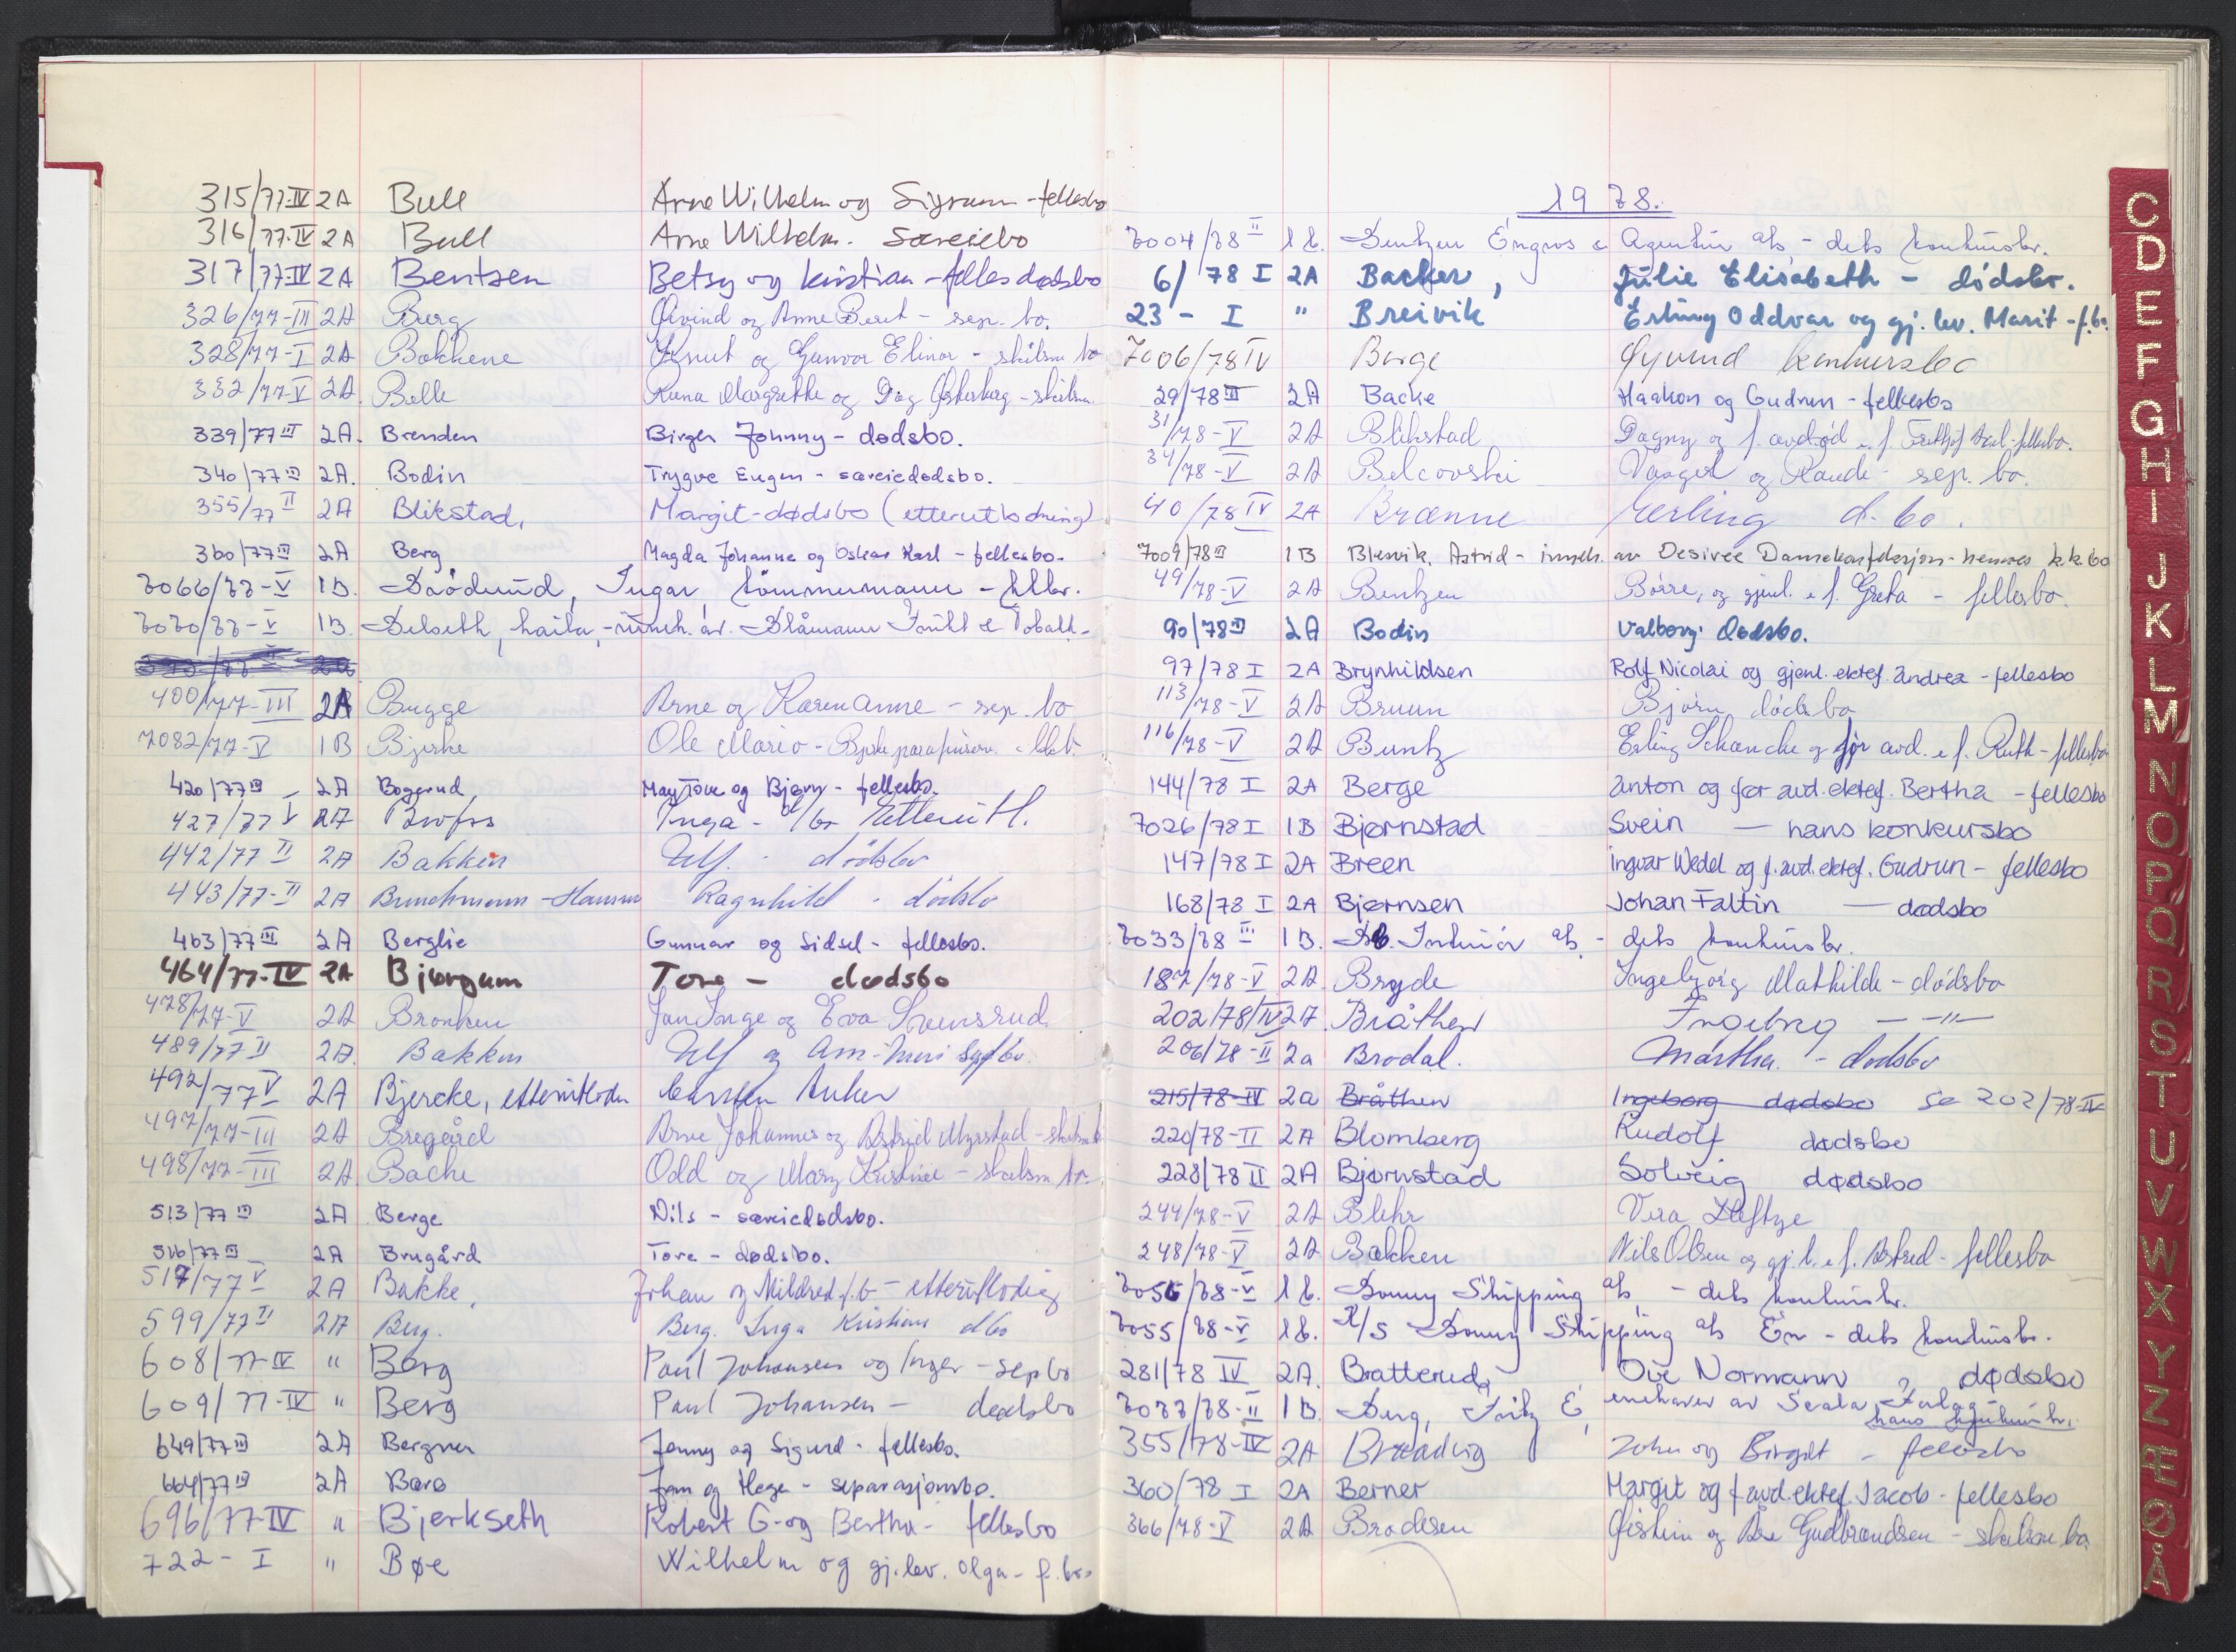 315/77-IV 2A Bull Arne Wilhelm og Sigrunn - fellesbo
316/77-IV 2A Bull Arne Wilhelm. Særeiebo
317/77-IV 2A Bentsen Betsy og Kristian - felles dødsbo
326/77-III 2A Berg Øivind og Anne Beret - sep. bo.
328/77-I 2A Bakkene Knut og Gunvor Elinor - skilsm. bo
332/77-V 2A. Belle Runa Margrethe og Dag Østerberg - skilsm.
339/77 III 2A. Brenden Birger Johnny - dødsbo.
340/77 III 2A. Bodin Trygve Eugen - særeiedødsbo.
355/77 II 2A Blikstad, Margit - dødsbo (etterutlodning)
360/77 III 2A Berg Magda Johanne og Oskar Karl - fellesbo.
7066/77-V 1B. Ingar, tømmermann -
7070/77-V 1B. Belseth, Laila, - inneh. av. Blåmann Frukt & Tobakk -
400/77-III 2A Bugge Arne og Karen Anne - sep. bo
7082/77-V 1B Bjerke Ole Mario -
420/77 III - 2A Bogerud May Tove og Bjørn - fellesbo.
427/77 V 2A Inga -
442/77 II 2A Bakken Ulf. - dødsbo
443/77-II 2A - Hansen Ragnhild - dødsbo
463/77 III 2A Berglie Gunnar og Sidsel - fellesbo.
464/77-IV 2A Bjørgum Tore - dødsbo
478/77-V 2A Bronken Jan Inge og Eva Svensrud
489/77 II 2A. Bakken Ulf og
492/77 V 2A Bjercke, etterutlodn Carsten Anker
497/77-III 2A Bregård Arne Johannes og Astrid Myrstad - skilsm. b
498/77-III 2A. Bache Odd og Mary Kristine - skilsm. bo.
513/77 III 2A Berge Nils - særeiedødsbo.
516/77 III 2A Brugård Tore - dødsbo.
517/77 V 2A Bakke, Johan og Mildred f.b - etterutlodnig
599/77 II 2A Berg. Berg. Inga Kristiane dbo
608/77-IV " Berg Paul Johansen og Inger - sepbo
609/77-IV " Berg Paul Johansen - dødsbo
649/77 III 2A Bergner Jenny og Sigurd - fellesbo.
664/77 III 2A Barø Jan og Hege - separasjonsbo.
696/77-IV " Bjerkseth Robert G. og Bertha - fellesbo
722 - I " Bøe Wilhelm og gj.lev. Olga - f.bo
1978.
7004/78 II 1b. Bentzen Engros & Agentur a/s - dets konkursbo.
6/78 I 2A Backer, Julie Elisabeth - dødsbo.
23 - I " Breivik Erling Oddvar og gj. lev. Marit - f.bo.
7006/78 IV Berge Øyvind konkursbo
29/78 III 2A Backe Haakon og Gudrun - fellesbo
31/78-V 2A Blikstad Dagny og f. avdød e. f. Fritjof Axel - fellesbo.
34/78-V 2A Belcovski - sep. bo.
40/78 IV 2A Brænne Erling d. bo.
7009/78 III 1B Blesvik, Astrid - inneh. av Desiree Damekonfeksjon - hennes k.k.bo
49/78-V 2A Bentzen Børre, og gjenl. e. f. Greta - fellesbo.
90/78 III 2A Bodin Valborg. Dødsbo.
97/78 I 2A Brynhildsen Rolf Nicolai og gjenl. ektef. Andrea - fellesbo
113/78-V 2A Bruun Bjørn dødsbo
116/78-V 2A Buntz Erling Schancke og før avd. e. f. Ruth - fellesbo
144/78 I 2A Berge Anton og før avd. ektef. Bertha - fellesbo
7026/78 I 1B Bjørnstad Svein - hans konkursbo
147/78 I 2A Breen Ingvar Wedel og f.avd. ektef. Gudrun - fellesbo
168/78 I 2A Bjørnsen Johan Faltin - dødsbo
7033/78 III 1B. Interiør a/s - dets konkursbo.
187/78-V 2A Bryde Ingebjørg Mathilde - dødsbo
202/78/IV 2A. Bråthen Ingeborg - " -
206/78-II 2a Brodal. Martha. - dødsbo
215/78-IV 2a Bråthen Ingeborg dødsbo Se 202/78-IV
220/78-II 2A Blomberg Rudolf dødsbo
228/78 II 2A Bjørnstad Solveig dødsbo
244/78-V 2A Blehr Vera
248/78-V 2A Bakken Nils Olsen og gj. l. e. f. Astrid - fellesbo
7056/78-V 1b. Bonny Shipping a/s - dets konkursbo.
7055/78-V 1b. K/S Bonny Shipping a/s En - dets konkursbo.
281/78 IV 2A. Bratterud, Ove Normann dødsbo
7077/78-II 1B. Berg, Fritz E, innehaver av Scala Forlag - hans konkursbo.
355/78-IV 2A Brødvig John og Birgit - fellesbo
360/78 I 2A Berner Margit og f.avd. ektef. Jacob - fellesbo
366/78-V 2A Brodersen Øistein og Gudbrandsen - skilsm. bo
C
D
E
F
G
H
I
J
K
L
M
N
O
P
Q
R
S
T
U
V
W
X
Y
Z
Æ
Ø
Å